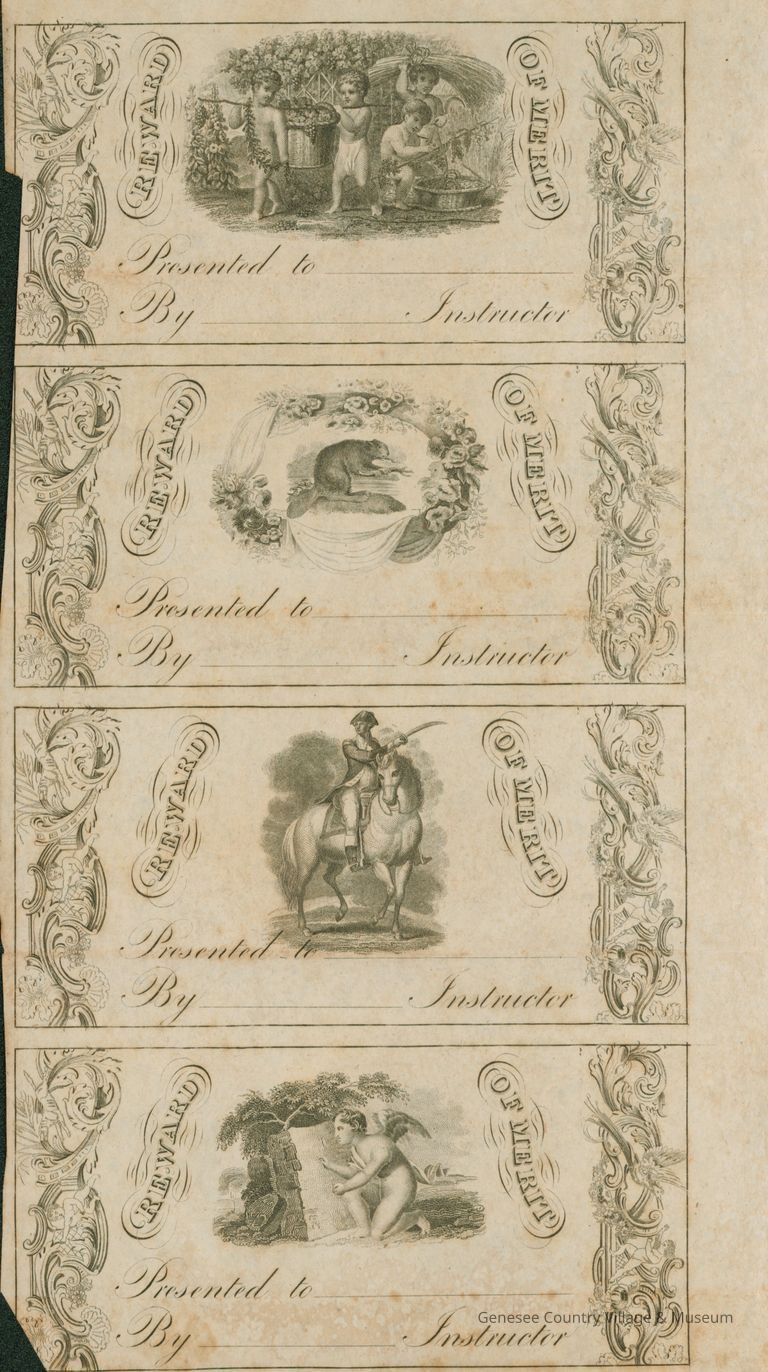 REWARD OF MERIT
Presented to
By Instructor
REWARD OF MERIT
Presented to
By Instructor
REWARD OF MERIT
Presented to
By Instructor
REWARD OF MERIT
Presented to
By Instructor
Genesee Country Village & Museum